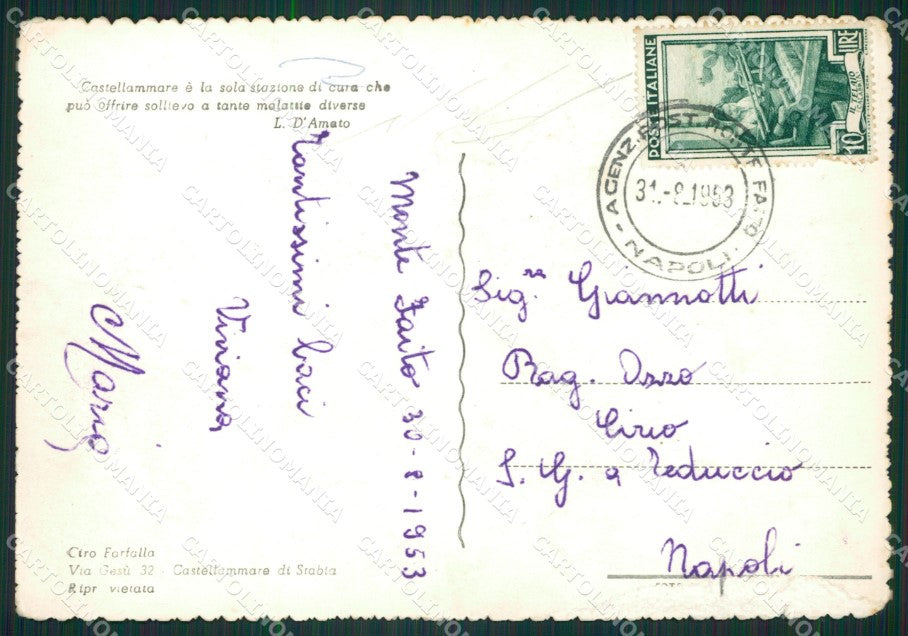 Castellammare è la sola stazione di cura che
può offrire sollievo a tante malattie diverse
L. D'Amato
Monte Faito 30-8-1953
Tantissimi baci
Viviana
Mario
Ciro Farfalla
Via Gesù 32 - Castellammare di Stabia
Ripr vietata
POSTE ITALIANE
LIRE
10
AGENZ. POST. MONTE FAITO
31.-8.1953
- NAPOLI.
Sig.ra Giannotti
Rag. Ozzo
Cirio
S. G. a Teduccio
Napoli
CARTOLINOMANIA